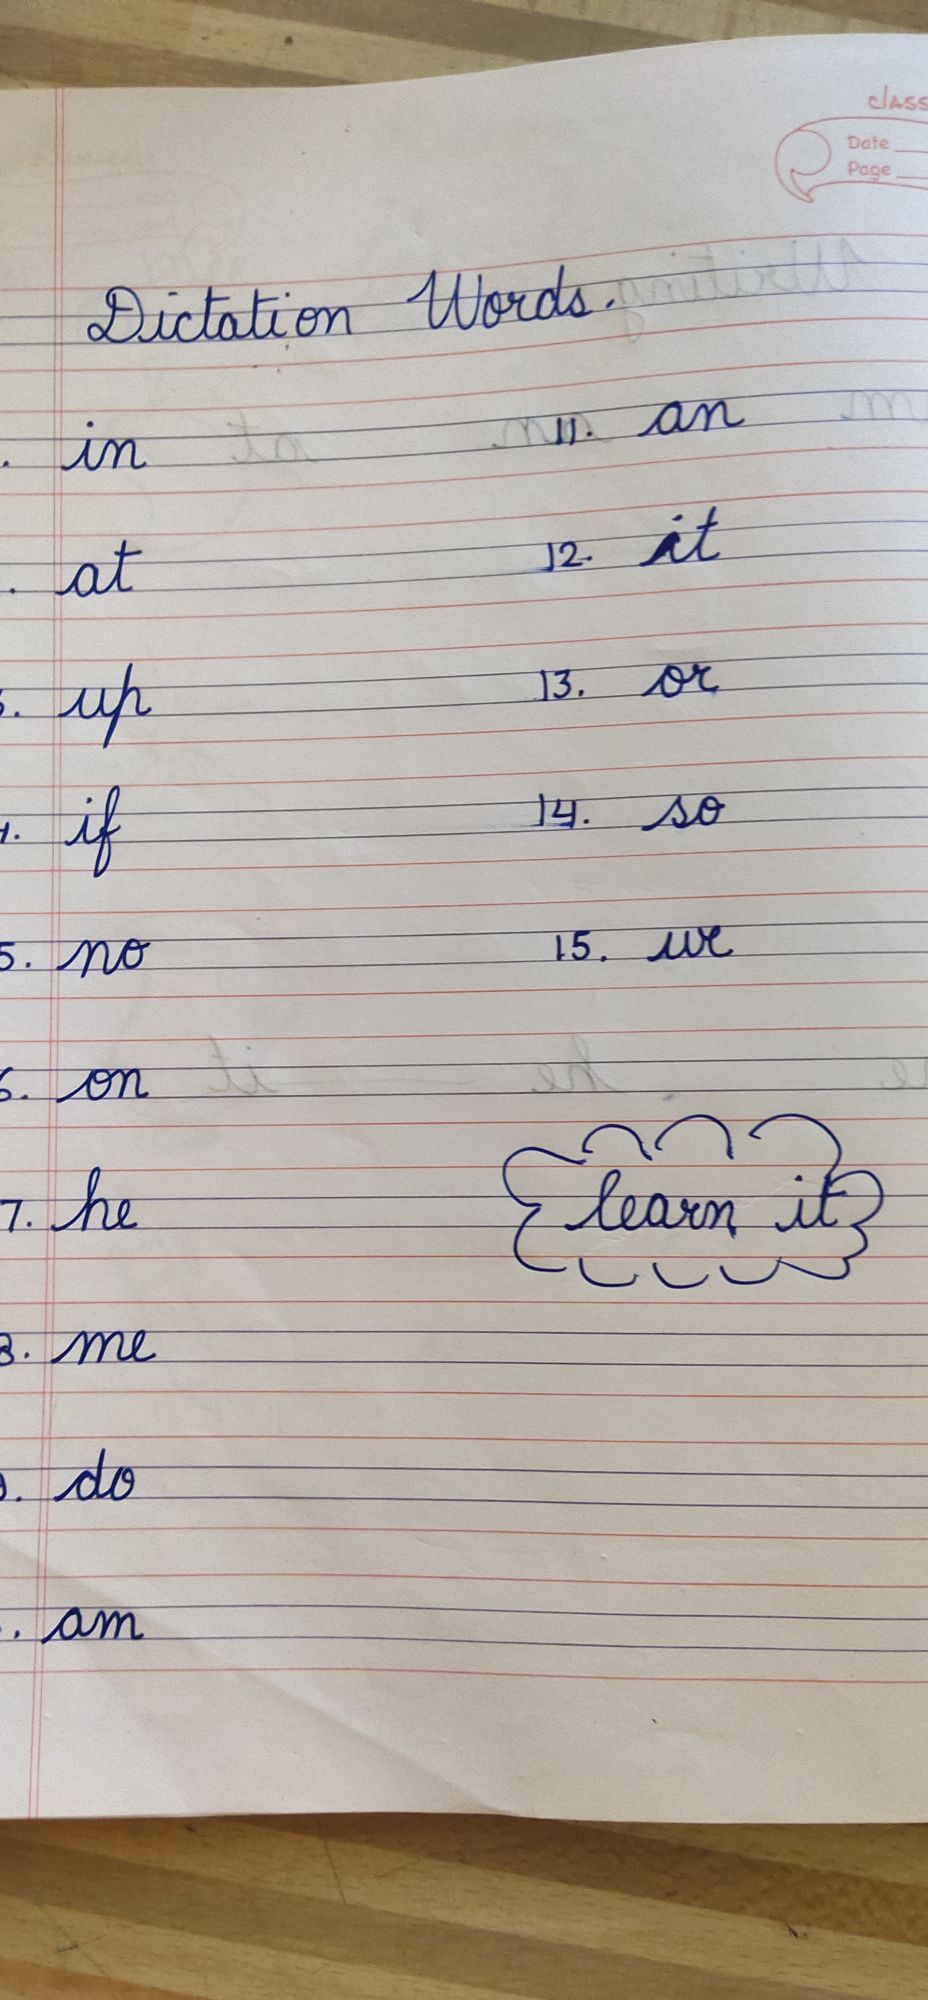 class
Date
Page
Dictation Words.
. in
. at
. up
4. if
5. no
6. on
7. he
8. me
9. do
. am
11. an
12. it
13. or
14. so
15. we
learn it